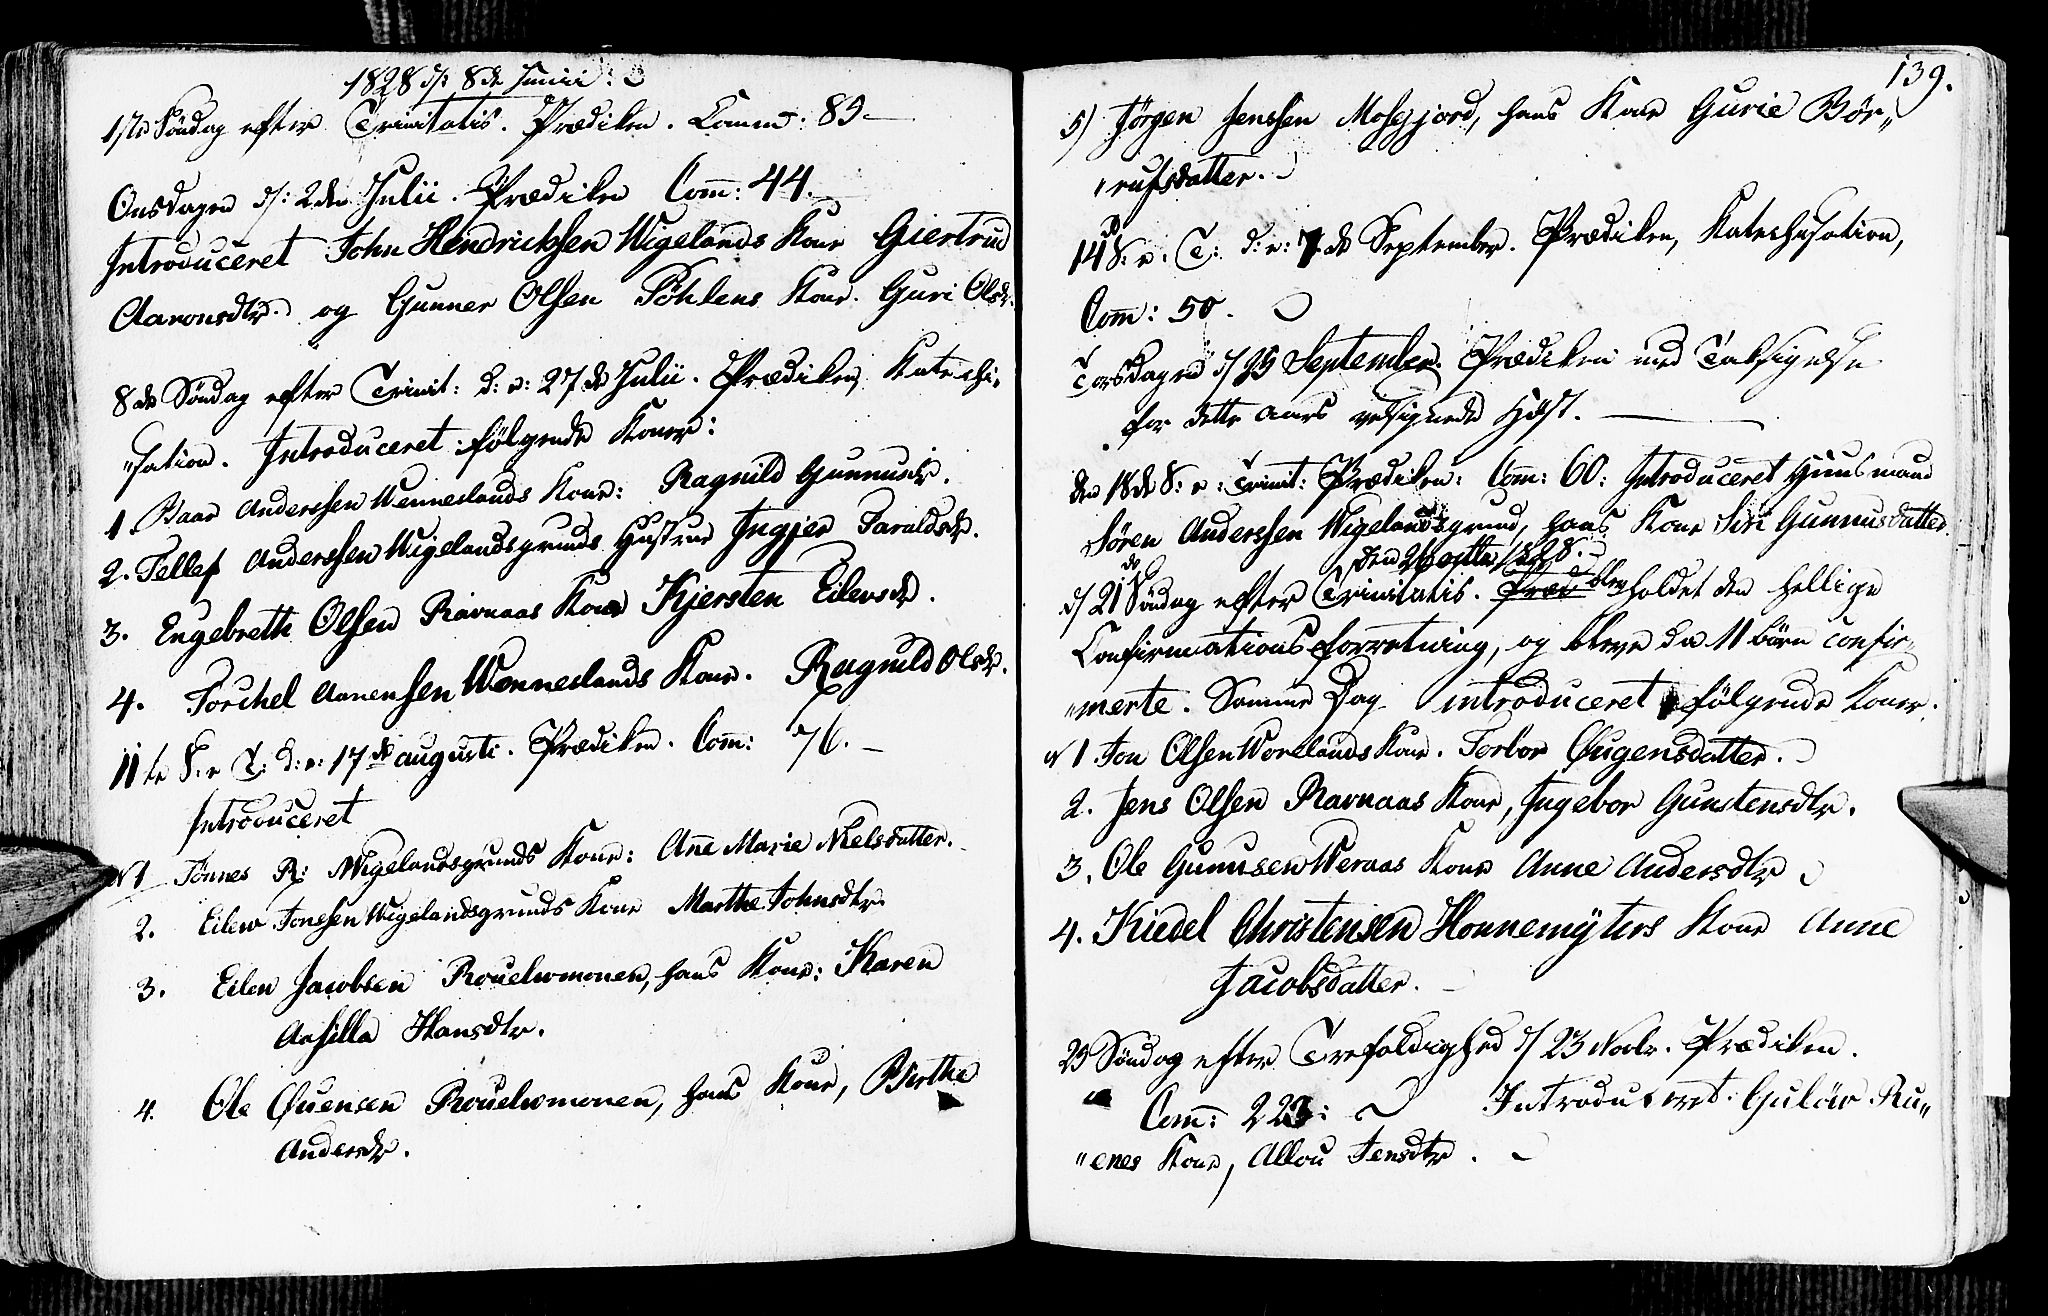 1828 d: 8de Junii:
1ste Söndag efter Trinitatis. Prædiken. Comm: 89
Onsdagen d: 2den Julii. Prædiken Com: 44.
Introduceret John Hendrichsen Wigelands Kone Giertrud
Aaronsdtr. og Gunner Olsen Föhlens Kone. Guri Olsdr.
8de Söndag efter Trinit: d: e: 27de Julii. Prædiken, Katechi„
„sation. Introduceret følgende Koner:
1 Baar Anderssen Wenneslands Kone: Ragnild Gunnusdr.
2. Tellef Anderssen Wigelandsgrunds Hustrue Ingjer Taraldsdr.
3. Engebreth Olsen Ravnaas Kone Kjersten Eilevsdr.
4. Torchel Aanensen Wenneslands Kone. Ragnild Olsdr.
11te S. e T: d: e: 17de augusti. Prædiken. Com: 76.
Introduceret
N1 Tönnes R: Wigelandsgrunds Kone: Ane Marie Nielsdatter.
2. Eilew Tonessen Wigelandsgrunds Kone Marthe Johnsdtr
3. Eilew Jacobsen Rouelwmonen, hans Kone: Karen
Axsilla Hansdtr.
4. Ole Qvensen Rouelwmonen, hans Kone, Birthe
Andersdr.
139.
5) Jørgen Jenssen Mosfjord, hans Kone Gurie Bør„
„rufsdatter.
14d S. e. T: d: e: 7de September. Prædiken, Katechisation,
Com: 50.
Torsdagen d 25 September. Prædiken med Taksigelse
for dette Aars velsignede Høst.
den 18de S: e: Trinit: Prædiken: Com: 60: Introduceret Huusmand
Sören Anderssen Wigelandsgrund, hans Kone Siri Gunnusdatter.
den 26 octbr 1828.
d 21de Söndag efter Trinitatis. Præd blev holdet den hellige
Confirmationsforretning, og bleve da 11 börn confir„
„merte. Samme Dag introduceret følgende Koner.
N 1 Jon Olsen Worelands Kone. Torbor Øugensdatter.
2. Jens Olsen Ravnaas Kone, Ingebor Gunstensdtr.
3. Ole Gunusen Weraas Kone Anne Andersdtr
4. Kiedel Christensen Honnemÿhrs Kone Anne
Jacobsdatter.
25 Söndag efter Trefoldighed d 23 Novbr. Prædiken.
Com: 223: Introduceret: Gulöw Ru„
„enes Kone, Allou Jensdtr.